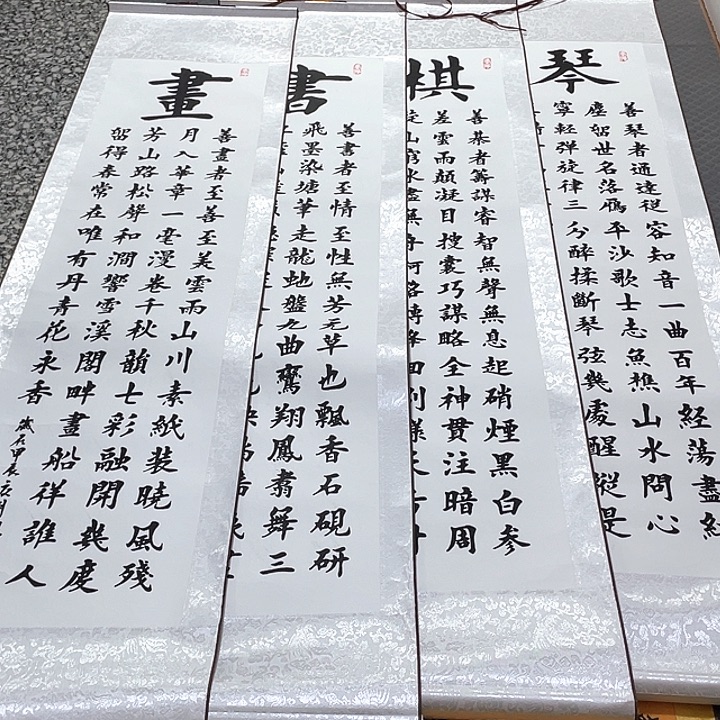 琴
善琴者通達從容知音一曲百年經蕩盡紅
塵留世名落雁平沙歌士志魚樵山水問心
寧輕彈旋律三分醉揉斷琴弦幾處醒縱是
棋
善棊者籌謀睿智無聲無息起硝煙黑白參
差雲雨顛凝目搜囊巧謀略全神貫注暗周
山窮水盡無
書
善書者至情至性無芳无草也飄香石硯研
飛墨染塘筆走龍虵盤九曲鸞翔鳳翥舞三
畫
善畫者至善至美雲雨山川素紙装曉風殘
月入華章一毫漫卷千秋韻七彩融開幾度
芳山路松聲和澗響雪溪閣畔畫船徉誰人
留得春常在唯有丹青花永香
歲在甲辰